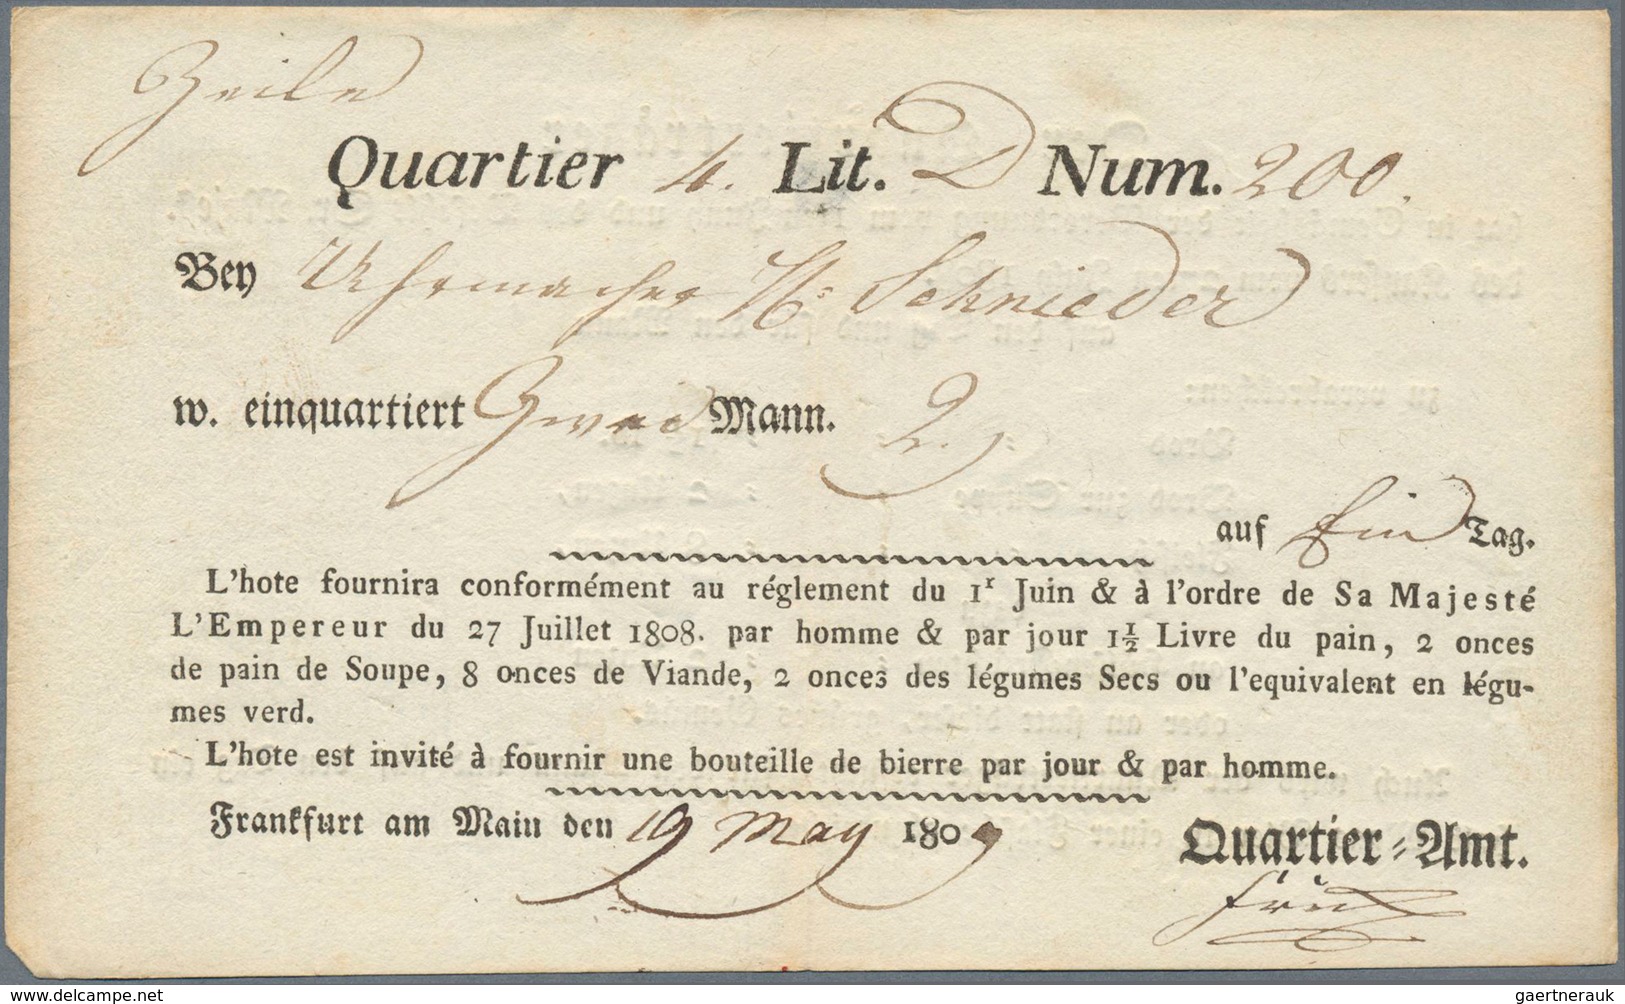 Zeile
Quartier 4. Lit. D Num. 200.
Bey Uhrmacher H: Schnieder
w. einquartiert Zwei Mann. 2.
auf Ein Tag.
L'hote fournira conformément au réglement du 1ʳ Juin & à l'ordre de Sa Majesté
L'Empereur du 27 Juillet 1808. par homme & par jour 1½ Livre du pain, 2 onces
de pain de Soupe, 8 onces de Viande, 2 onces des légumes Secs ou l'equivalent en légu-
mes verd.
L'hote est invité à fournir une bouteille de bierre par jour & par homme.
Frankfurt am Main den 19 May 1809
Quartier-Amt.
www.delcampe.net
gaertnerauk